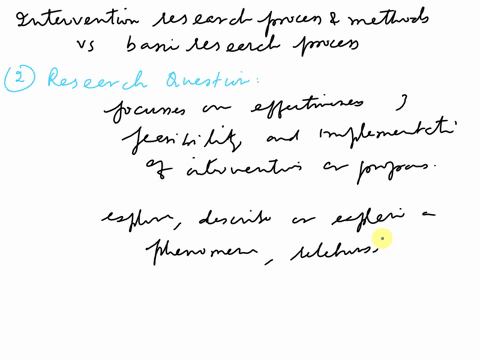 Intervention research process & methods
vs basic research process
② Research Question:
focusses on effectiveness,
feasibility, and implementation
of interventions or programs.
explore, describe or explain a
phenomena, relations,